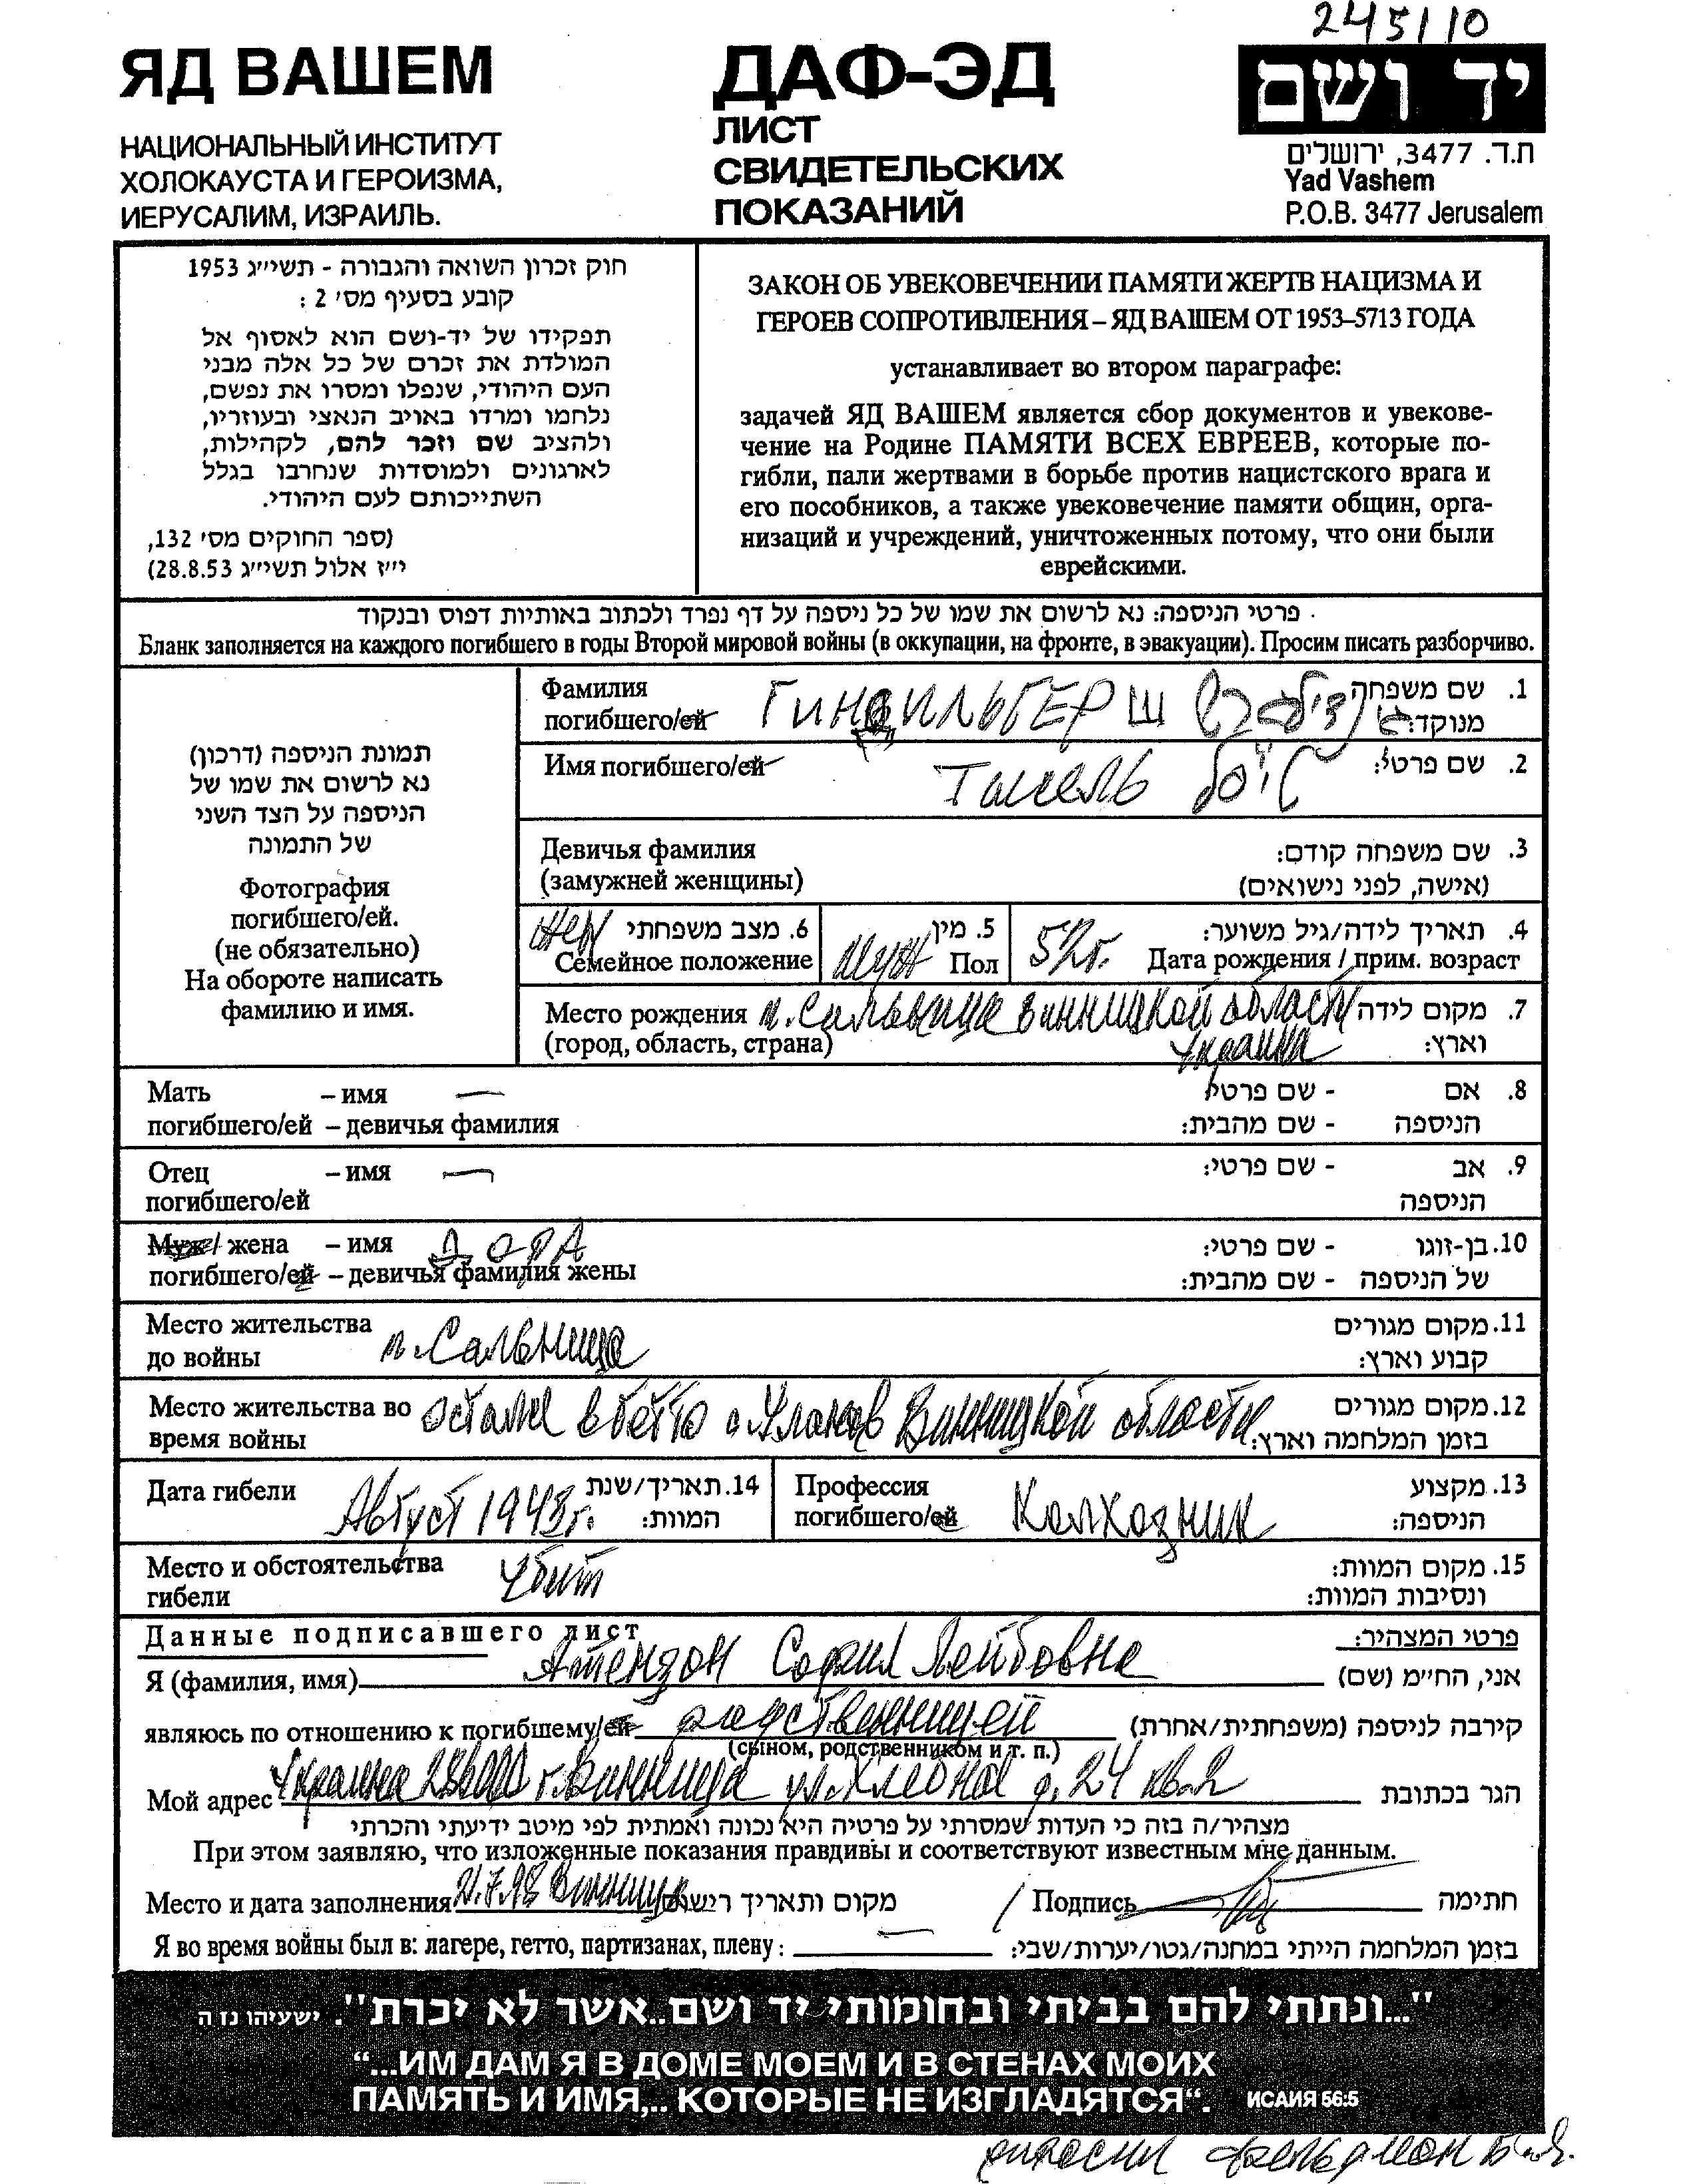 245110
ЯД ВАШЕМ
НАЦИОНАЛЬНЫЙ ИНСТИТУТ
ХОЛОКАУСТА И ГЕРОИЗМА,
ИЕРУСАЛИМ, ИЗРАИЛЬ.
ДАФ-ЭД
ЛИСТ
СВИДЕТЕЛЬСКИХ
ПОКАЗАНИЙ
יד ושם
ת.ד. 3477, ירושלים
Yad Vashem
P.O.B. 3477 Jerusalem
חוק זכרון השואה והגבורה - תשי״ג 1953
קובע בסעיף מס׳ 2 :
תפקידו של יד-ושם הוא לאסוף אל
המולדת את זכרם של כל אלה מבני
העם היהודי, שנפלו ומסרו את נפשם,
נלחמו ומרדו באויב הנאצי ובעוזריו,
ולהציב שם וזכר להם, לקהילות,
לארגונים ולמוסדות שנחרבו בגלל
השתייכותם לעם היהודי.
(ספר החוקים מס׳ 132,
י״ז אלול תשי״ג 28.8.53)
ЗАКОН ОБ УВЕКОВЕЧЕНИИ ПАМЯТИ ЖЕРТВ НАЦИЗМА И
ГЕРОЕВ СОПРОТИВЛЕНИЯ – ЯД ВАШЕМ ОТ 1953–5713 ГОДА
устанавливает во втором параграфе:
задачей ЯД ВАШЕМ является сбор документов и увекове-
чение на Родине ПАМЯТИ ВСЕХ ЕВРЕЕВ, которые по-
гибли, пали жертвами в борьбе против нацистского врага и
его пособников, а также увековечение памяти общин, орга-
низаций и учреждений, уничтоженных потому, что они были
еврейскими.
פרטי הניספה: נא לרשום את שמו של כל ניספה על דף נפרד ולכתוב באותיות דפוס ובנקוד
Бланк заполняется на каждого погибшего в годы Второй мировой войны (в оккупации, на фронте, в эвакуации). Просим писать разборчиво.
תמונת הניספה (דרכון)
נא לרשום את שמו של
הניספה על הצד השני
של התמונה
Фотография
погибшего/ей.
(не обязательно)
На обороте написать
фамилию и имя.
Фамилия 1. שם משפחה
погибшего/ей מנוקד:
Имя погибшего/ей 2. שם פרטי:
Девичья фамилия 3. שם משפחה קודם:
(замужней женщины) (אישה, לפני נישואים)
жен 6. מצב משפחתי муж 5. מין 52г. 4. תאריך לידה/גיל משוער:
Семейное положение Пол Дата рождения / прим. возраст
Место рождения Винницкой области 7. מקום לידה
(город, область, страна) Украина וארץ:
Мать – имя — 8. אם - שם פרטי
погибшего/ей – девичья фамилия הניספה - שם מהבית:
Отец – имя — 9. אב - שם פרטי:
погибшего/ей הניספה
Муж / жена – имя ДОРА 10. בן-זוגו - שם פרטי:
погибшего/ей – девичья фамилия жены של הניספה - שם מהבית:
Место жительства п. Сальница 11. מקום מגורים
до войны קבוע וארץ:
Место жительства во с. Уланов Винницкой области 12. מקום מגורים
время войны בזמן המלחמה וארץ:
Дата гибели Август 1943г. 14. תאריך/שנת המוות:
Профессия Колхозник 13. מקצוע
погибшего/ей הניספה:
Место и обстоятельства Убит 15. מקום המוות:
гибели ונסיבות המוות:
Данные подписавшего лист פרטי המצהיר:
Я (фамилия, имя) София Лейбовна אני, החי״מ (שם)
являюсь по отношению к погибшему/ей родственницей קירבה לניספה (משפחתית/אחרת)
(сыном, родственником и т. п.)
Мой адрес Украина г. Винница ул. д. 24 кв. 2 הגר בכתובת
מצהיר/ה בזה כי העדות שמסרתי על פרטיה היא נכונה ואמתית לפי מיטב ידיעתי והכרתי
При этом заявляю, что изложенные показания правдивы и соответствуют известным мне данным.
Место и дата заполнения 21.7.98 Винница מקום ותאריך רישום Подпись חתימה
Я во время войны был в: лагере, гетто, партизанах, плену : — בזמן המלחמה הייתי במחנה/גטו/יערות/שבי:
"...ונתתי להם בביתי ובחומותי יד ושם..אשר לא יכרת". ישעיהו נו ה
“...ИМ ДАМ Я В ДОМЕ МОЕМ И В СТЕНАХ МОИХ
ПАМЯТЬ И ИМЯ,.. КОТОРЫЕ НЕ ИЗГЛАДЯТСЯ“. ИСАИЯ 56:5